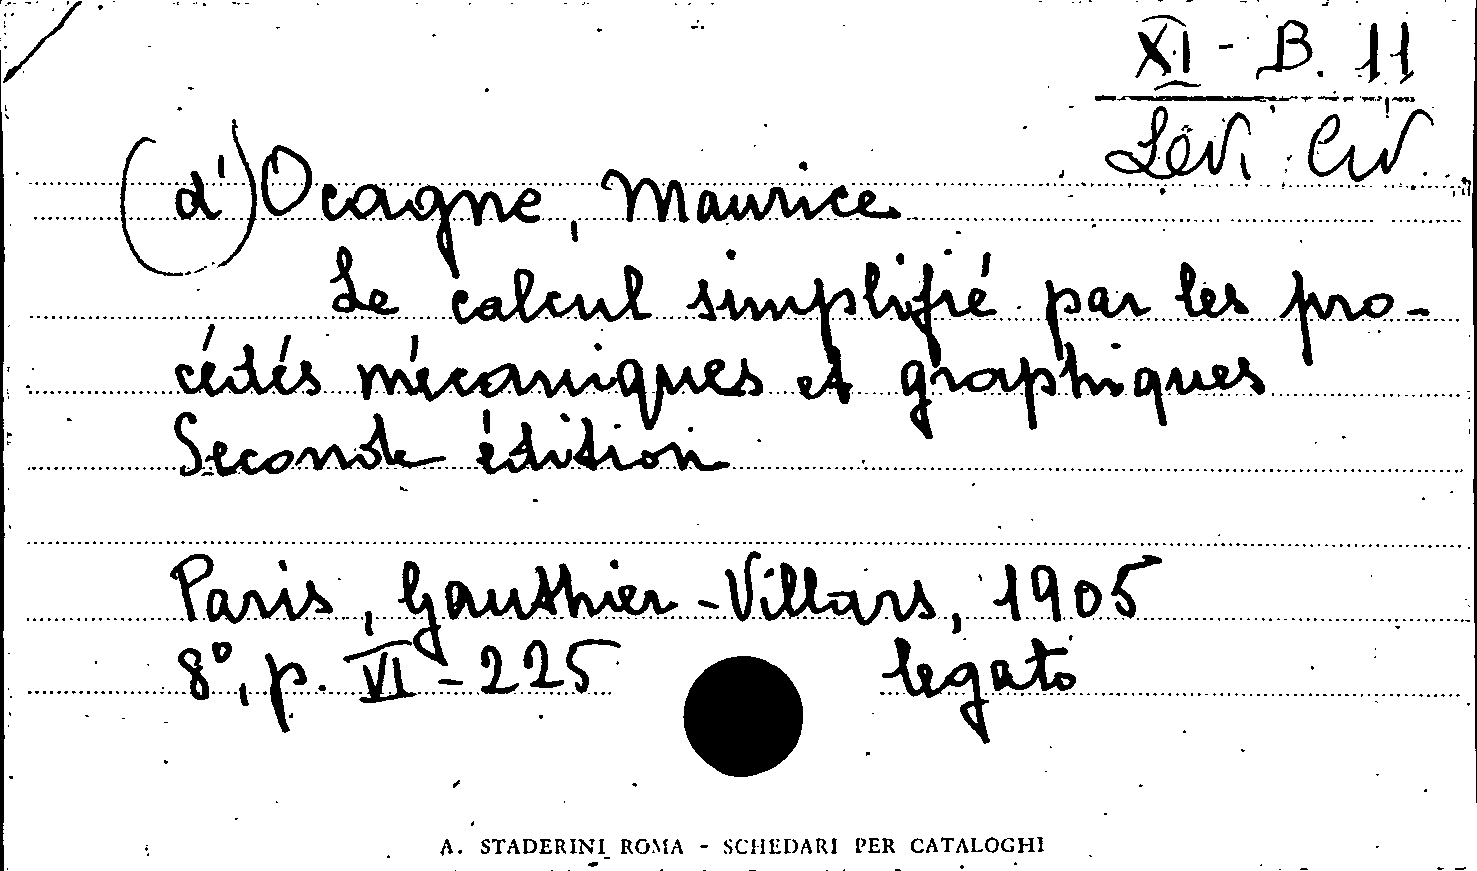 XI - B. 11
Levi Civ.
(d') Ocagne, Maurice
Le calcul simplifié par les pro-
cédés mécaniques et graphiques
Seconde édition
Paris, Gauthier-Villars, 1905
8°, p. VI - 225 legato
A. STADERINI ROMA - SCHEDARI PER CATALOGHI